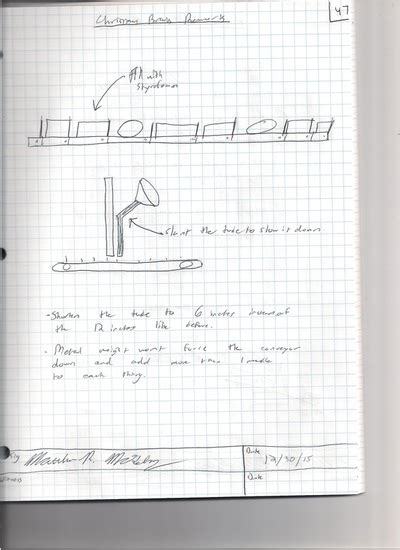 Christmas Break
47
Fill with
Styrofoam
Slant the tube to slow it down
- Shorten the tube to 6 inches instead of
the 12 inches like before.
- Metal weight won't force the conveyor
down and add more than 1 marble
to each thing.
By
Date
12/30/15
Witness
Date